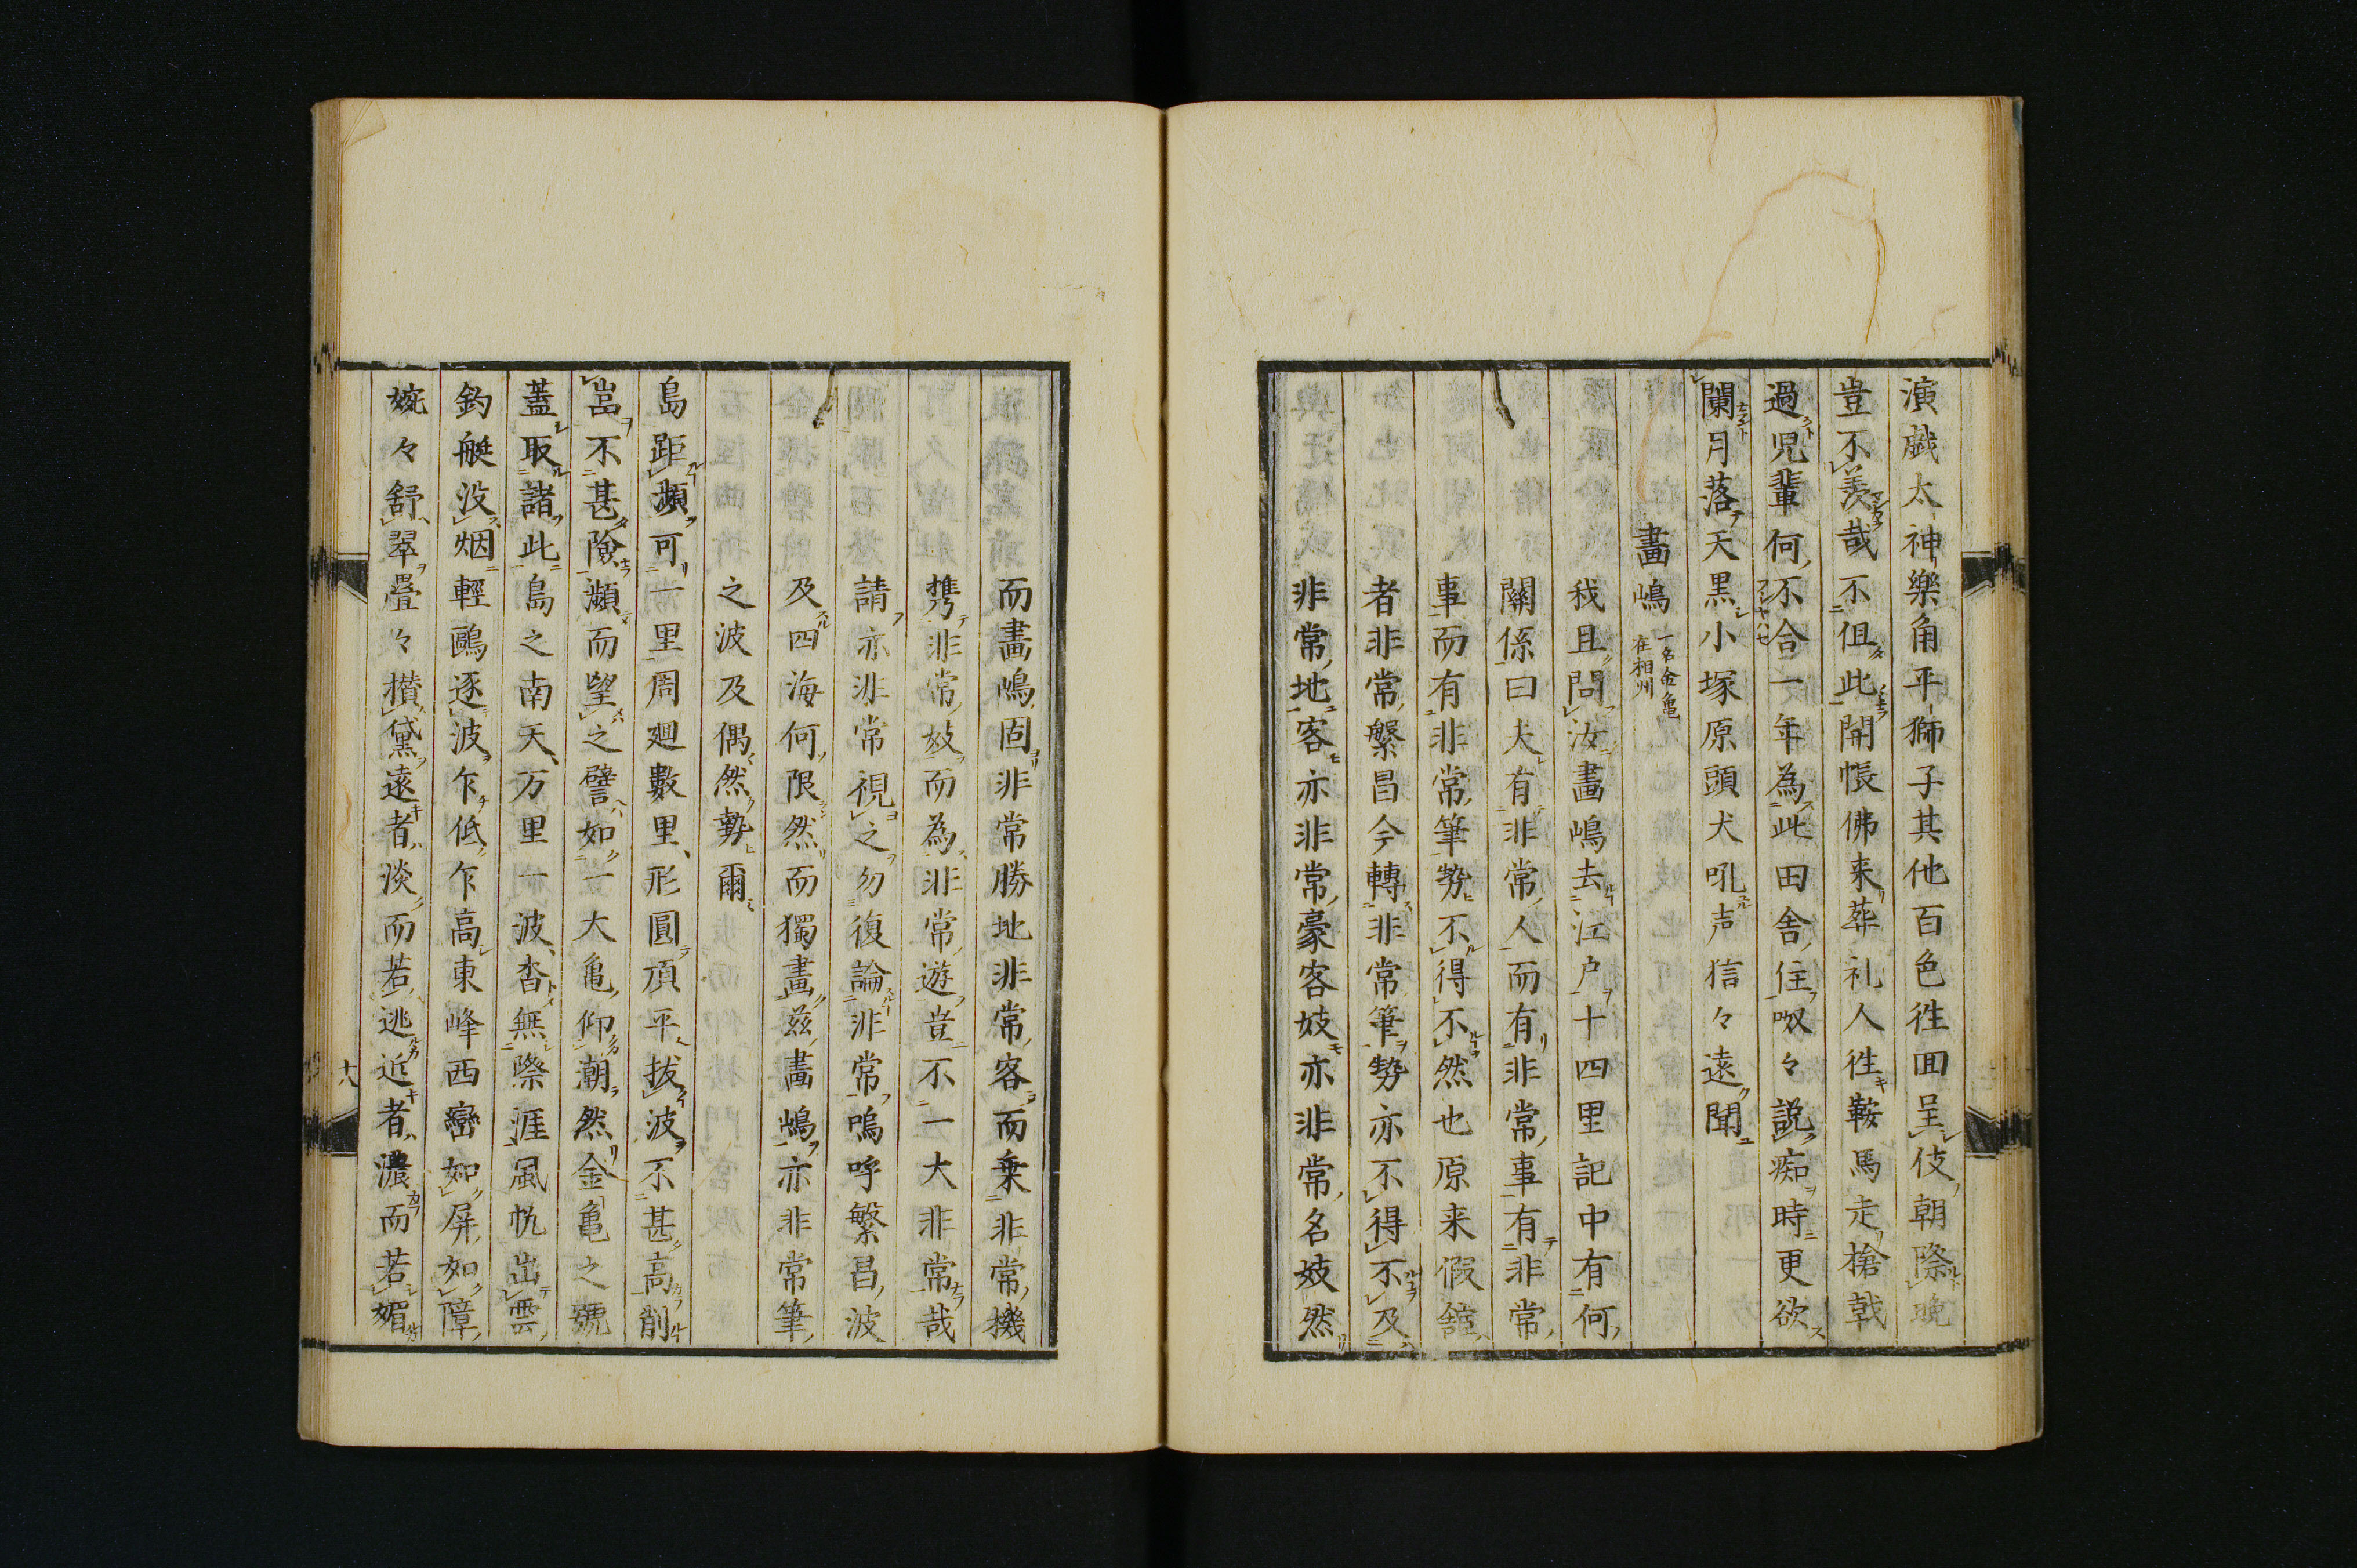 演戯太神樂角平獅子其他百色徃囬呈伎朝際晩
豈不羨哉不但此開帳佛来葬礼人徃鞍馬走槍戟
過児輩何不合一年為此田舎住呶々説痴時更欲
闌月落天黒小塚原頭犬吼声狺々遠聞
畫嶋 一名金亀在相州
我且問汝畫嶋去江戸十四里記中有何
關係曰夫有非常人而有非常事有非常
事而有非常筆勢不得不然也原来假
者非常繁昌今轉非常筆勢亦不得不及
非常地客亦非常豪客妓亦非常名妓然
而畫嶋固非常勝地非常客而乗非常機
携非常妓而為非常遊豈不一大非常哉
請亦非常視之勿復論非常嗚呼繁昌波
及四海何限然而獨畫茲畫嶋亦非常筆
之波及偶然勢爾
島距瀕可一里周廻數里形圓頂平抜波不甚高削
岊不甚險瀕而望之譬如一大亀仰潮然金亀之號
蓋取諸此島之南天万里一波杳無際涯風帆出雲
釣艇没烟輕鷗逐波乍低乍高東峰西巒如屏如障
婉々舒翠疊々攅黛遠者淡而若逃近者濃而若媚
十八